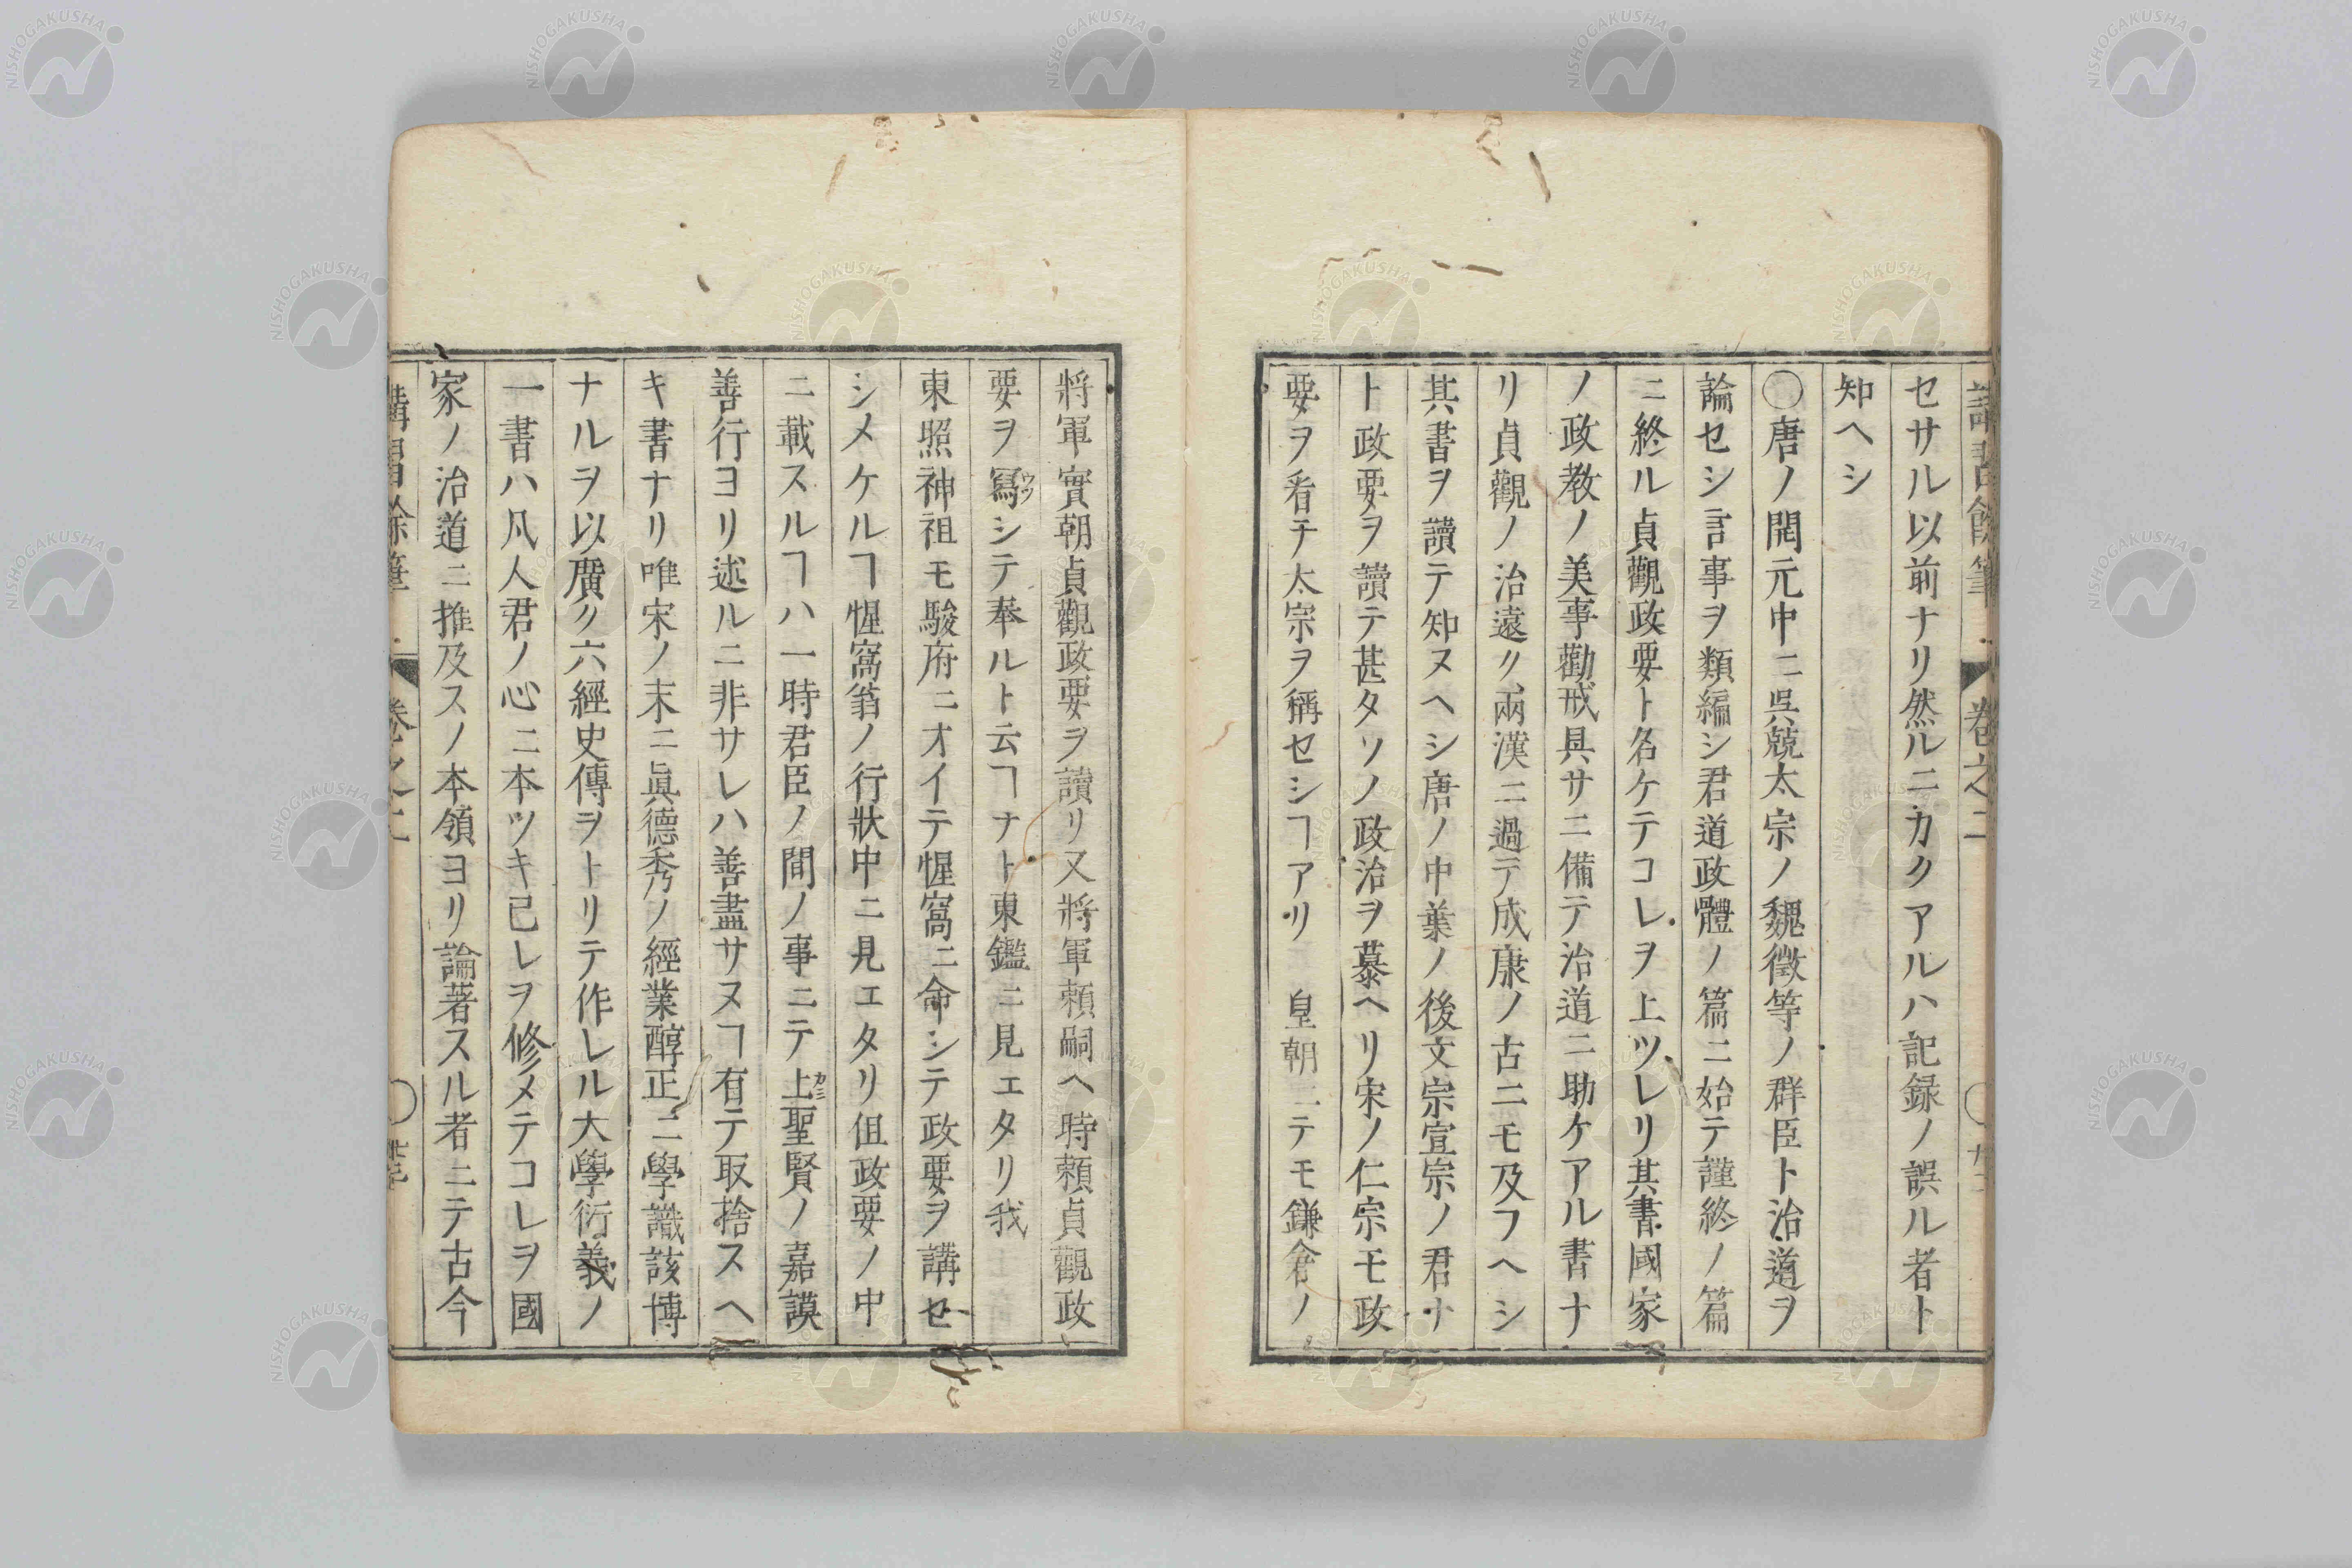 セサル以前ナリ然ルニカクアルハ記録ノ誤ル者ト
知ヘシ
〇唐ノ開元中ニ呉兢太宗ノ魏徵等ノ群臣ト治道ヲ
論セシ言事ヲ類編シ君道政體ノ篇ニ始テ謹終ノ篇
ニ終ル貞觀政要ト名ケテコレヲ上ツレリ其書國家
ノ政教ノ美事勸戒具サニ備テ治道ニ助ケアル書ナ
リ貞觀ノ治遠ク兩漢ニ過テ成康ノ古ニモ及フヘシ
其書ヲ讀テ知ヌヘシ唐ノ中葉ノ後文宗宣宗ノ君ナ
ト政要ヲ讀テ甚タソノ政治ヲ慕ヘリ宋ノ仁宗モ政
要ヲ看テ太宗ヲ稱セシヿアリ 皇朝ニテモ鎌倉ノ
將軍實朝貞觀政要ヲ讀リ又將軍頼嗣ヘ時頼貞觀政
要ヲ寫シテ奉ルト云ヿナト東鑑ニ見エタリ我
東照神祖モ駿府ニオイテ惺窩ニ命シテ政要ヲ講セ
シメケルヿ惺窩翁ノ行狀中ニ見エタリ伹政要ノ中
ニ載スルヿハ一時君臣ノ間ノ事ニテ上聖賢ノ嘉謨
善行ヨリ述ルニ非サレハ善盡サヌヿ有テ取捨スヘ
キ書ナリ唯宋ノ末ニ眞德秀乃ノ經業醇正ニ學識該博
ナルヲ以廣ク六經史傳ヲトリテ作レル大學衍義ノ
一書ハ凡人君ノ心ニ本ツキ已レヲ修メテコレヲ國
家ノ治道ニ推及スノ本領ヨリ論著スル者ニテ古今
講習餘筆 卷之二
NISHOGAKUSHA